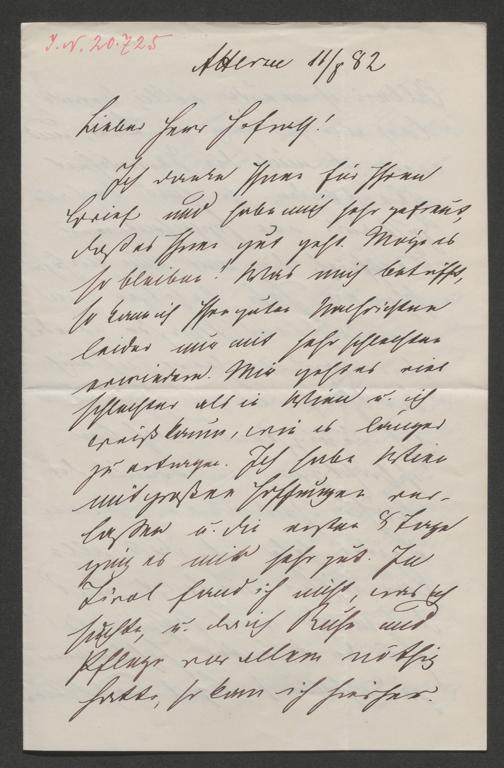 I.N. 20.725
Attersee 11/8 82
Lieber Herr Hofrath!
Ich danke Ihnen für Ihren
Brief und habe mich sehr gefreut,
daß es Ihnen gut geht. Möge es
so bleiben! Was mich betrifft,
so kann ich Ihre guten Nachrichten
leider nur mit sehr schlechten
erwiedern. Mir geht es viel
schlechter als in Wien u. ich
weiß kaum, wie es länger
zu ertragen. Ich habe Wien
mit großen Hoffnungen ver-
lassen u. die ersten 8 Tage
ging es mir sehr gut. In
Tirol fand ich nicht, was ich
suchte, u. da ich Ruhe und
Pflege vor allem nöthig
hatte, so kam ich hierher.